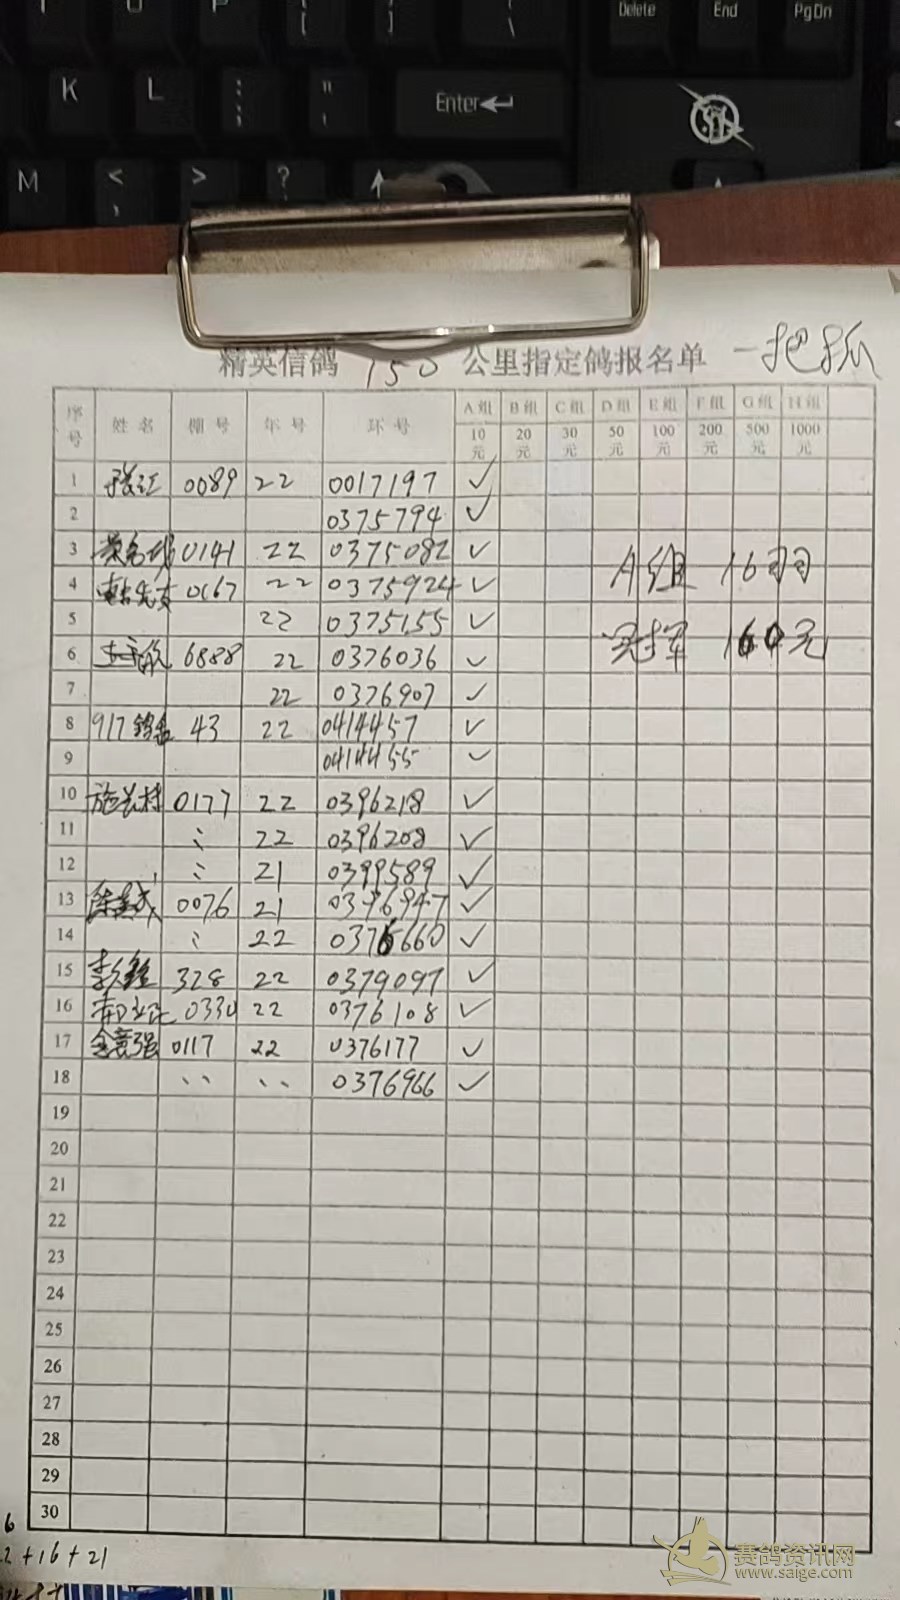 K L Enter Delete End PgDn
M < > ?
精英信鸽 150 公里指定鸽报名单 一把抓
序号 姓名 棚号 年号 环号 A组 B组 C组 D组 E组 F组 G组 H组
10元 20元 30元 50元 100元 200元 500元 1000元
1 张江 0089 22 0017197 ✓
2 0375794 ✓
3 0141 22 0375082 ✓
4 0167 22 0375924 ✓
A组 16羽
5 22 0375155 ✓
6 6888 22 0376036 ✓
冠军 160元
7 22 0376907 ✓
8 917鸽舍 43 22 0414457 ✓
9 0414455 ✓
10 施长林 0177 22 0396218 ✓
11 22 0396208 ✓
12 21 0399589 ✓
13 0076 21 0396947 ✓
14 22 0376660 ✓
15 328 22 0379097 ✓
16 0330 22 0376108 ✓
17 0117 22 0376177 ✓
18 0376966 ✓
19
20
21
22
23
24
25
26
27
28
29
30
6
2+16+21
赛鸽资讯网
www.saige.com